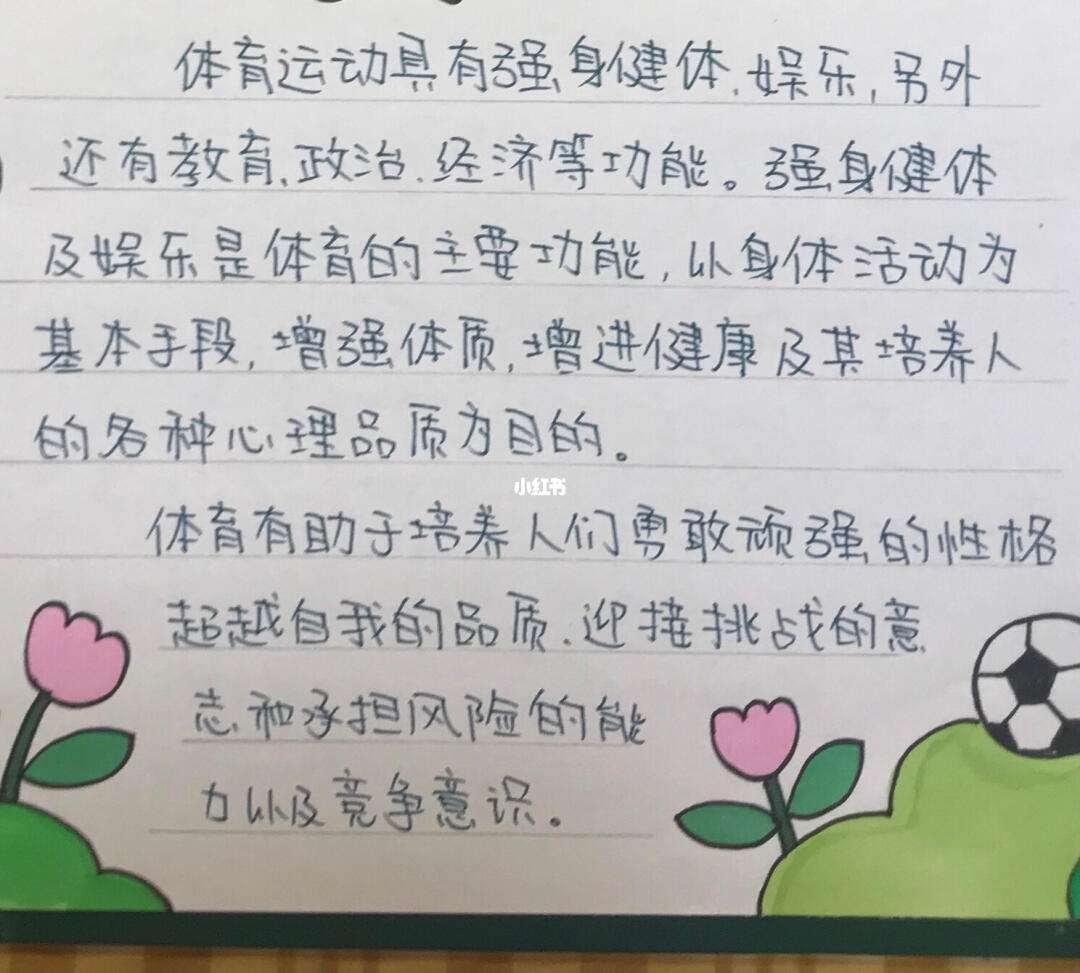 体育运动具有强身健体、娱乐,另外
还有教育、政治、经济等功能。强身健体
及娱乐是体育的主要功能,以身体活动为
基本手段,增强体质,增进健康及其培养人
的各种心理品质为目的。
小红书
体育有助于培养人们勇敢顽强的性格
超越自我的品质、迎接挑战的意
志和承担风险的能
力以及竞争意识。